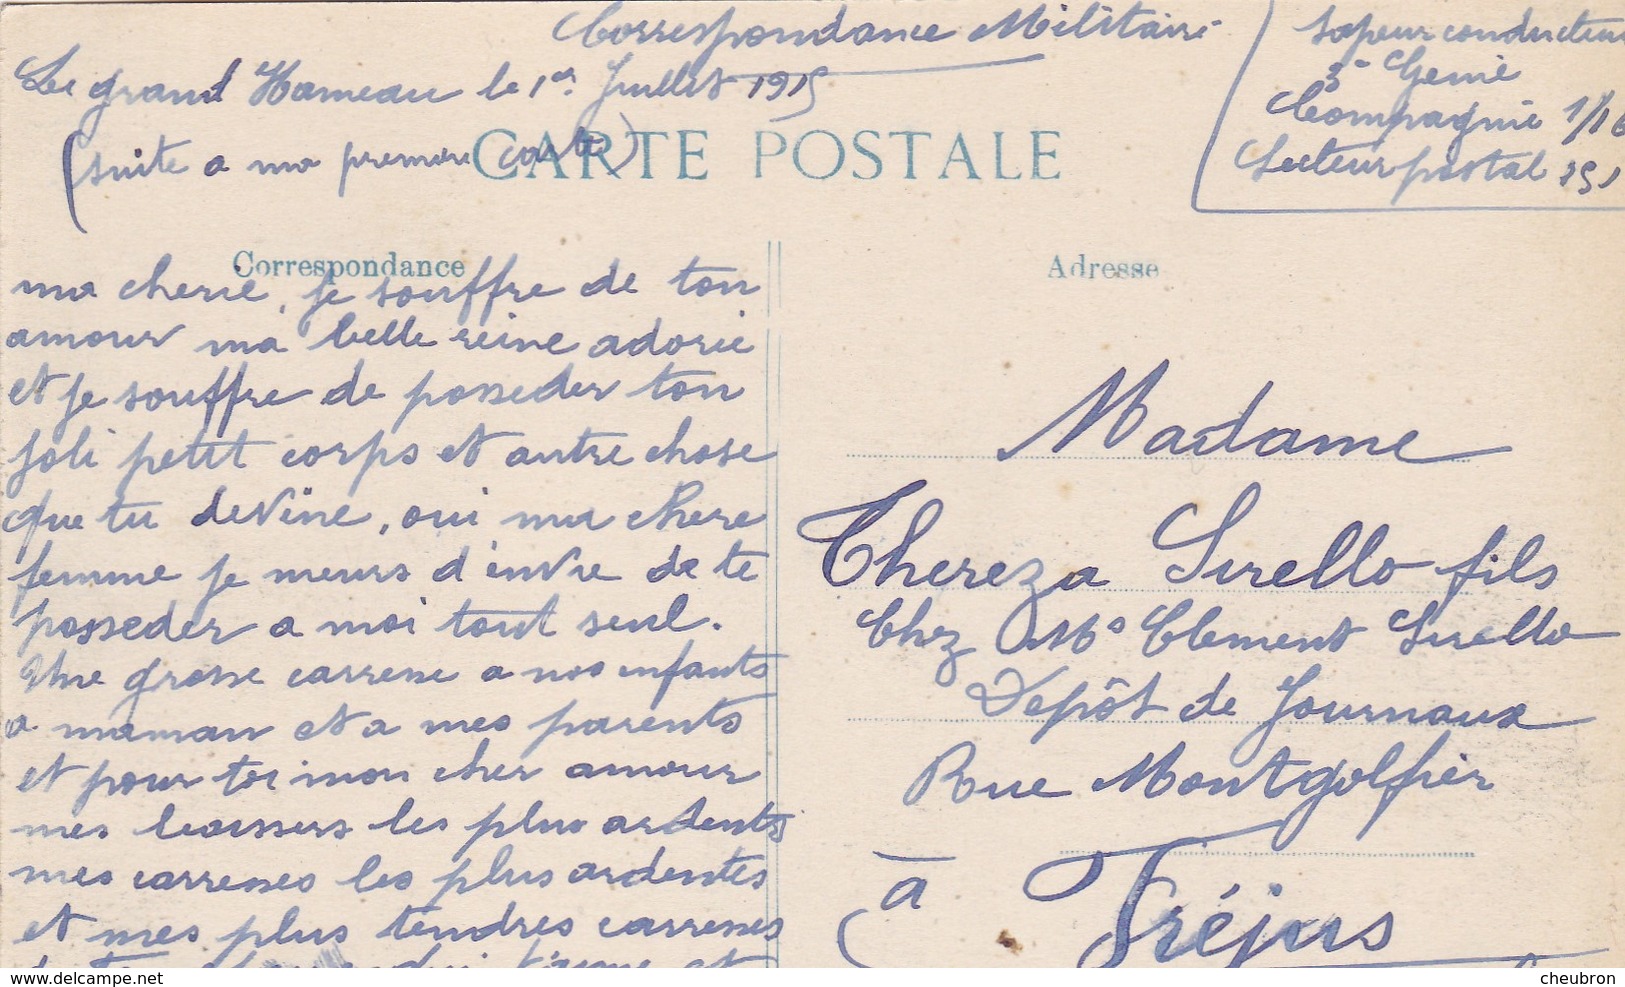 Correspondance Militaire
Le grand Hameau le 1er Juillet 1915
(suite a ma premiere carte)
CARTE POSTALE
Sapeur conducteur
3e Genie
Compagnie 1/16
Secteur postal 151
Correspondance
ma cherie, je souffre de ton
amour ma belle reine adorée
et je souffre de posseder ton
joli petit corps et autre chose
que tu devine, oui ma chere
femme je meurs d'envie de te
posseder a moi tout seul.
Une grosse carresse a nos enfants
a maman et a mes parents
et pour toi mon cher amour
mes baissers les plus ardents
mes carresses les plus ardentes
et mes plus tendres carresses
Adresse
Madame
Thereza Sirello fils
Chez Mr Clement Sirello
Depôt de Journaux
Rue Montgolfier
a Fréjus
https://www.delcampe.net
cheubron